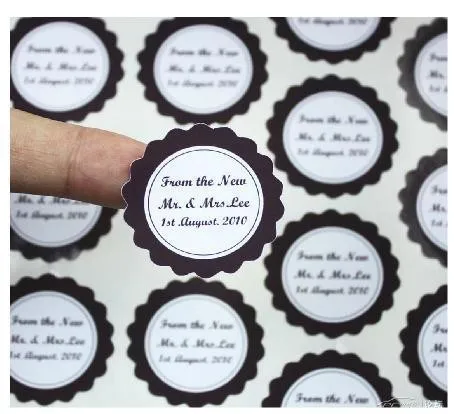 From the New
Mr. & Mrs.Lee
1st August. 2010
From the New
Mr. & Mrs.Lee
1st August. 2010
From the New
Mr. & Mrs.Lee
1st August. 2010
From the New
Mr. & Mrs.Lee
1st August. 2010
From the New
Mr. & Mrs.Lee
1st August. 2010
From the New
Mr. & Mrs.Lee
1st August. 2010
From the New
Mr. & Mrs.Lee
1st August. 2010
From the New
论坛